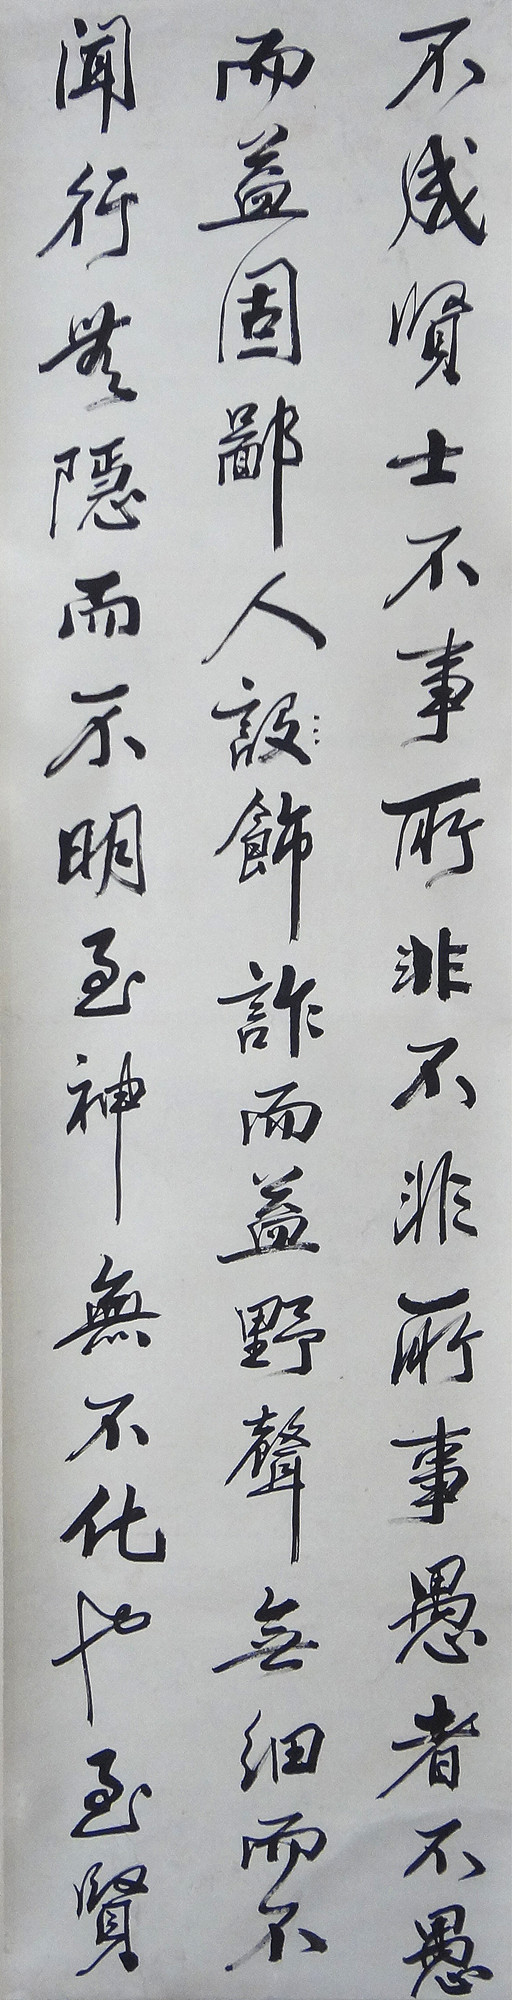 不成賢士不事所非不非所事愚者不愚
而益固鄙人設飾詐而益野聲無細而不
聞行無隱而不明至神無不化也至賢